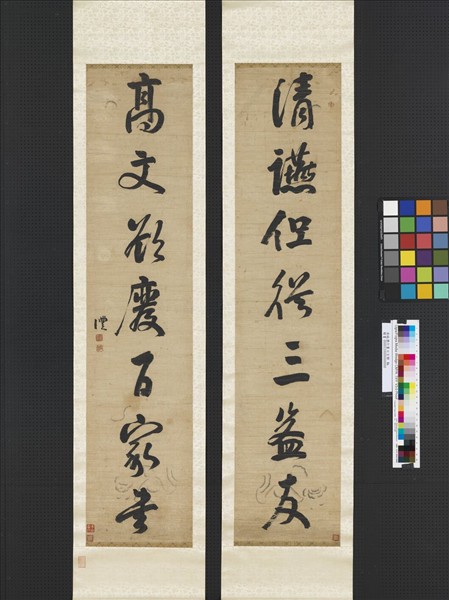 清讌但從三益友
高文欲廢百家書